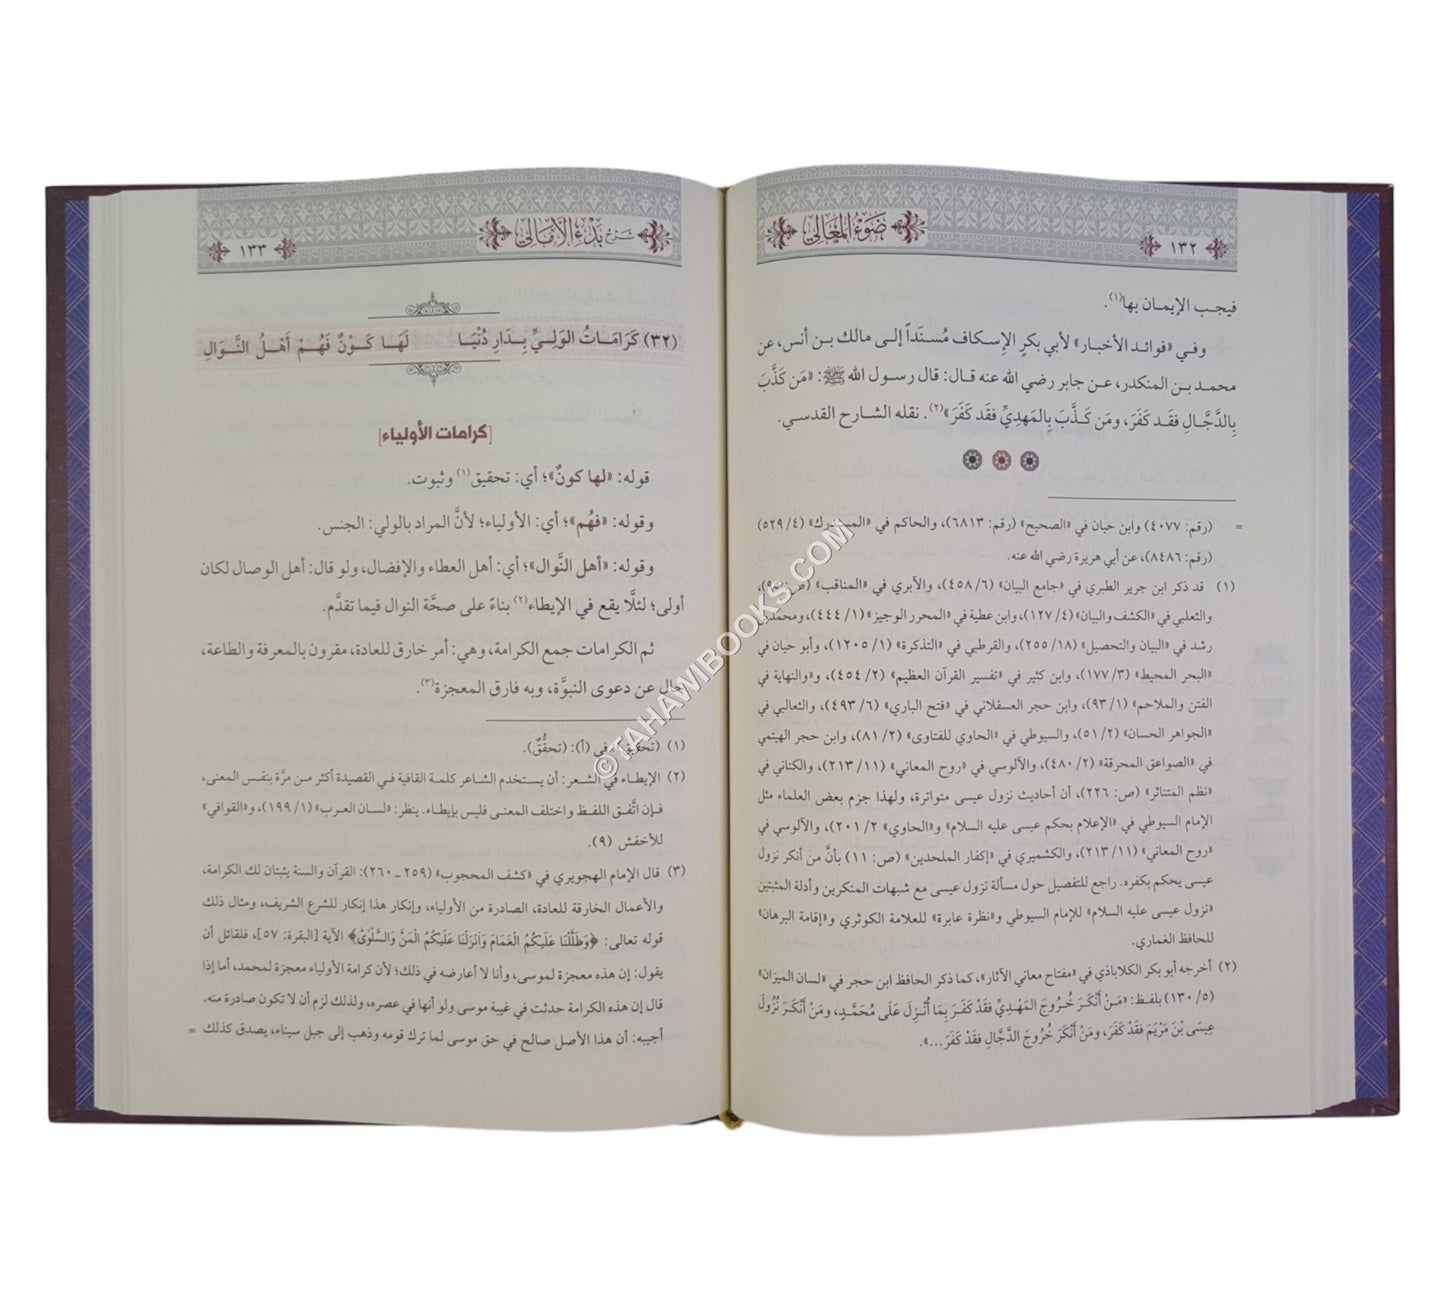 ١٣٢
ضَوْءُ المَعَالي
فيجب الإيمان بها(١).
وفي «فوائد الأخبار» لأبي بكرٍ الإسكاف مُسنَداً إلى مالك بن أنس، عن
محمد بن المنكدر، عن جابر رضي الله عنه قال: قال رسول الله ﷺ: «مَن كَذَّبَ
بِالدَّجَّالِ فقَد كَفَرَ، ومَن كَذَّبَ بِالمَهدِيِّ فقَد كَفَرَ»(٢). نقله الشارح القدسي.
= (رقم: ٤٠٧٧) وابن حبان في «الصحيح» (رقم: ٦٨١٣)، والحاكم في «المستدرك» (٤/ ٥٢٩)
(رقم: ٨٤٨٦)، عن أبي هريرة رضي الله عنه.
(١) قد ذكر ابن جرير الطبري في «جامع البيان» (٦/ ٤٥٨)، والآبري في «المناقب» (ص:
والثعلبي في «الكشف والبيان» (٤/ ١٢٧)، وابن عطية في «المحرر الوجيز» (١/ ٤٤٤)، ومحمد بن
رشد في «البيان والتحصيل» (١٨/ ٢٥٥)، والقرطبي في «التذكرة» (١/ ١٢٠٥)، وأبو حيان في
«البحر المحيط» (٣/ ١٧٧)، وابن كثير في «تفسير القرآن العظيم» (٢/ ٤٥٤)، و«النهاية في
الفتن والملاحم» (١/ ٩٣)، وابن حجر العسقلاني في «فتح الباري» (٦/ ٤٩٣)، والثعالبي في
«الجواهر الحسان» (٢/ ٥١)، والسيوطي في «الحاوي للفتاوى» (٢/ ٨١)، وابن حجر الهيتمي
في «الصواعق المحرقة» (٢/ ٤٨٠)، والآلوسي في «روح المعاني» (١١/ ٢١٣)، والكتاني في
«نظم المتناثر» (ص: ٢٢٦)، أن أحاديث نزول عيسى متواترة، ولهذا جزم بعض العلماء مثل
الإمام السيوطي في «الإعلام بحكم عيسى عليه السلام» و«الحاوي» ٢/ ٢٠١)، والآلوسي في
«روح المعاني» (١١/ ٢١٣)، والكشميري في «إكفار الملحدين» (ص: ١١) بأنَّ من أنكر نزول
عيسى يحكم بكفره. راجع للتفصيل حول مسألة نزول عيسى مع شبهات المنكرين وأدلة المثبتين
«نزول عيسى عليه السلام» للإمام السيوطي و«نظرة عابرة» للعلامة الكوثري و«إقامة البرهان»
للحافظ الغماري.
(٢) أخرجه أبو بكر الكلاباذي في «مفتاح معاني الآثار»، كما ذكر الحافظ ابن حجر في «لسان الميزان»
(٥/ ١٣٠) بلفظ: «مَنْ أَنْكَرَ خُرُوجَ المَهْدِيِّ فقَدْ كَفَرَ بِمَا أُنْزِلَ عَلَى مُحَمَّدٍ، ومَنْ أَنْكَرَ نُزُولَ
عِيسَى بْنَ مَرْيَمَ فقَدْ كَفَرَ، ومَنْ أَنْكَرَ خُرُوجَ الدَّجَّالِ فقَدْ كَفَرَ...».
شرح بَدْءِ الأَمَالي
١٣٣
(٣٢) كَرَامَاتُ الوَلِيِّ بِدَارِ دُنْيَا لَهَا كَوْنٌ فَهُمْ أَهْلُ النَّوَالِ
[كرامات الأولياء]
قوله: «لها كونٌ»؛ أي: تحقيق(١) وثبوت.
وقوله: «فهُم»؛ أي: الأولياء؛ لأنَّ المراد بالولي: الجنس.
وقوله: «أهل النَّوال»؛ أي: أهل العطاء والإفضال، ولو قال: أهل الوصال لكان
أولى؛ لئلَّا يقع في الإيطاء(٢) بناءً على صحَّة النوال فيما تقدَّم.
ثم الكرامات جمع الكرامة، وهي: أمر خارق للعادة، مقرون بالمعرفة والطاعة،
خال عن دعوى النبوَّة، وبه فارق المعجزة(٣).
(١) (تحقيق) في (أ): (تحقُّقٌ).
(٢) الإيطاء في الشعر: أن يستخدم الشاعر كلمة القافية في القصيدة أكثر من مرَّة بنفس المعنى،
فإن اتَّفق اللفظ واختلف المعنى فليس بإيطاء. ينظر: «لسان العرب» (١/ ١٩٩)، و«القوافي»
للأخفش (٩).
(٣) قال الإمام الهجويري في «كشف المحجوب» (٢٥٩ـ٢٦٠): القرآن والسنة يثبتان لك الكرامة،
والأعمال الخارقة للعادة، الصادرة من الأولياء، وإنكار هذا إنكار للشرع الشريف، ومثال ذلك
قوله تعالى: ﴿وَظَلَّلْنَا عَلَيْكُمُ الْغَمَامَ وَأَنزَلْنَا عَلَيْكُمُ الْمَنَّ وَالسَّلْوَىٰ﴾ الآية [البقرة: ٥٧]، فلقائل أن
يقول: إن هذه معجزة لموسى، وأنا لا أعارضه في ذلك؛ لأن كرامة الأولياء معجزة لمحمد، أما إذا
قال إن هذه الكرامة حدثت في غيبة موسى ولو أنها في عصره، ولذلك لزم أن لا تكون صادرة منه.
أجيبه: أن هذا الأصل صالح في حق موسى لما ترك قومه وذهب إلى جبل سيناء، يصدق كذلك =
©TAHAWIBOOKS.COM